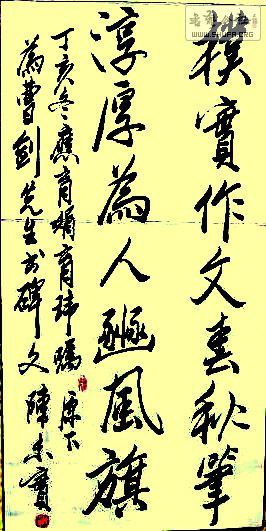 樸實作文春秋筆
淳厚為人豳風旗
丁亥冬應育娟育瑋囑
為曹劍先生書碑文 陳
WWW.SHUFA.ORG